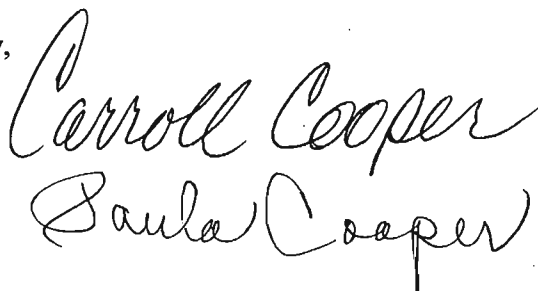 Carroll Cooper
Paula Cooper